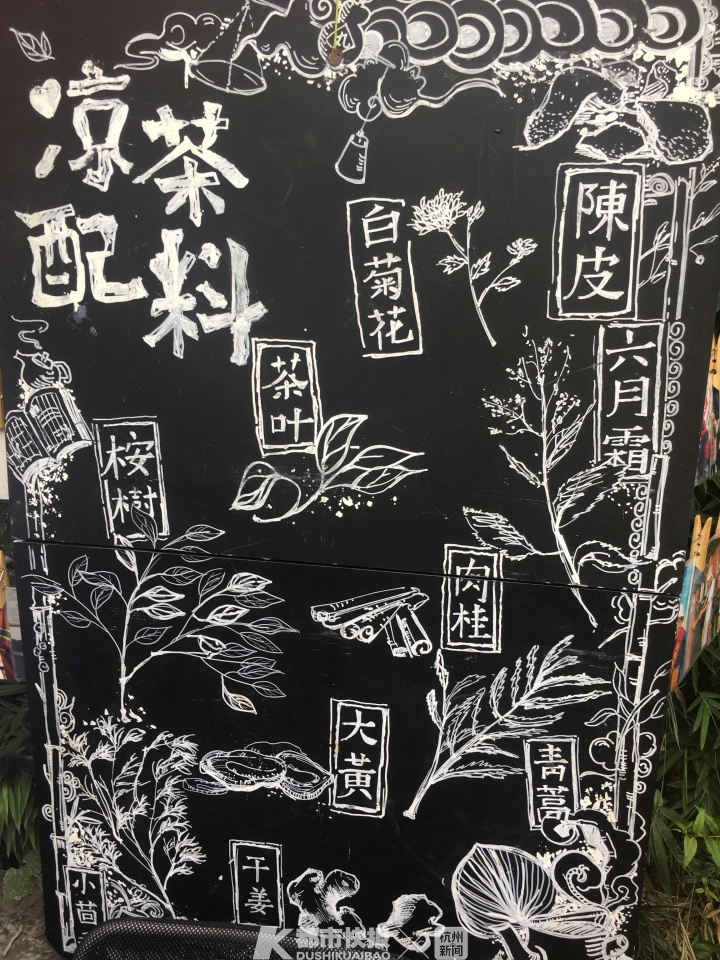 凉茶
配料
陳皮
白菊花
六月霜
茶叶
桉樹
肉桂
大黃
青蒿
干姜
小茴
K都市快报
杭州
新闻
DUSHIKUAIBAO